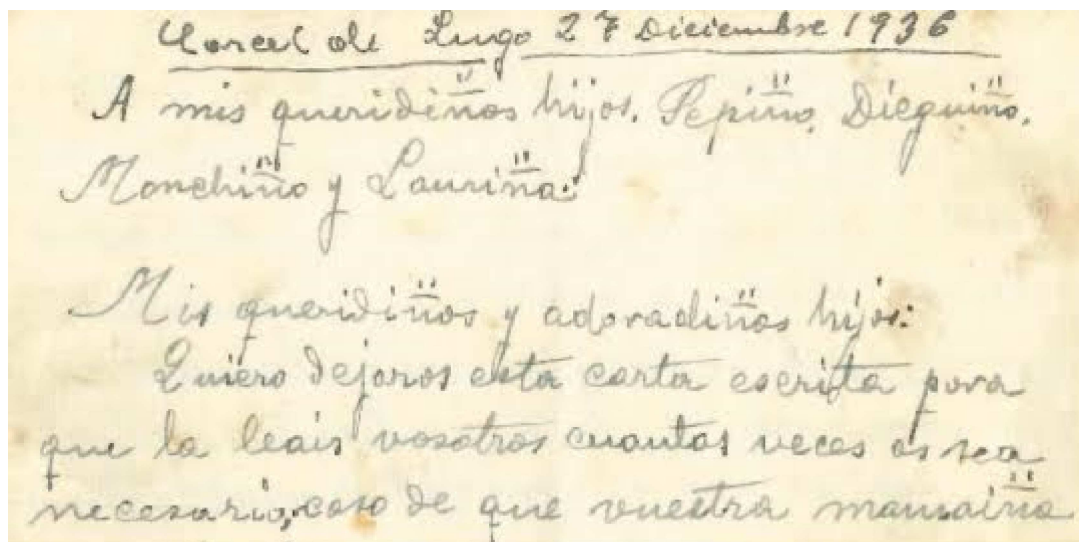 Carcel de Lugo 27 Diciembre 1936
A mis queridiños hijos. Pepiño, Dieguiño,
Monchiño y Lauriña:
Mis queridiños y adoradiños hijos:
Quiero dejaros esta carta escrita para
que la leais vosotros cuantas veces os sea
necesario, caso de que vuestra mamaiña